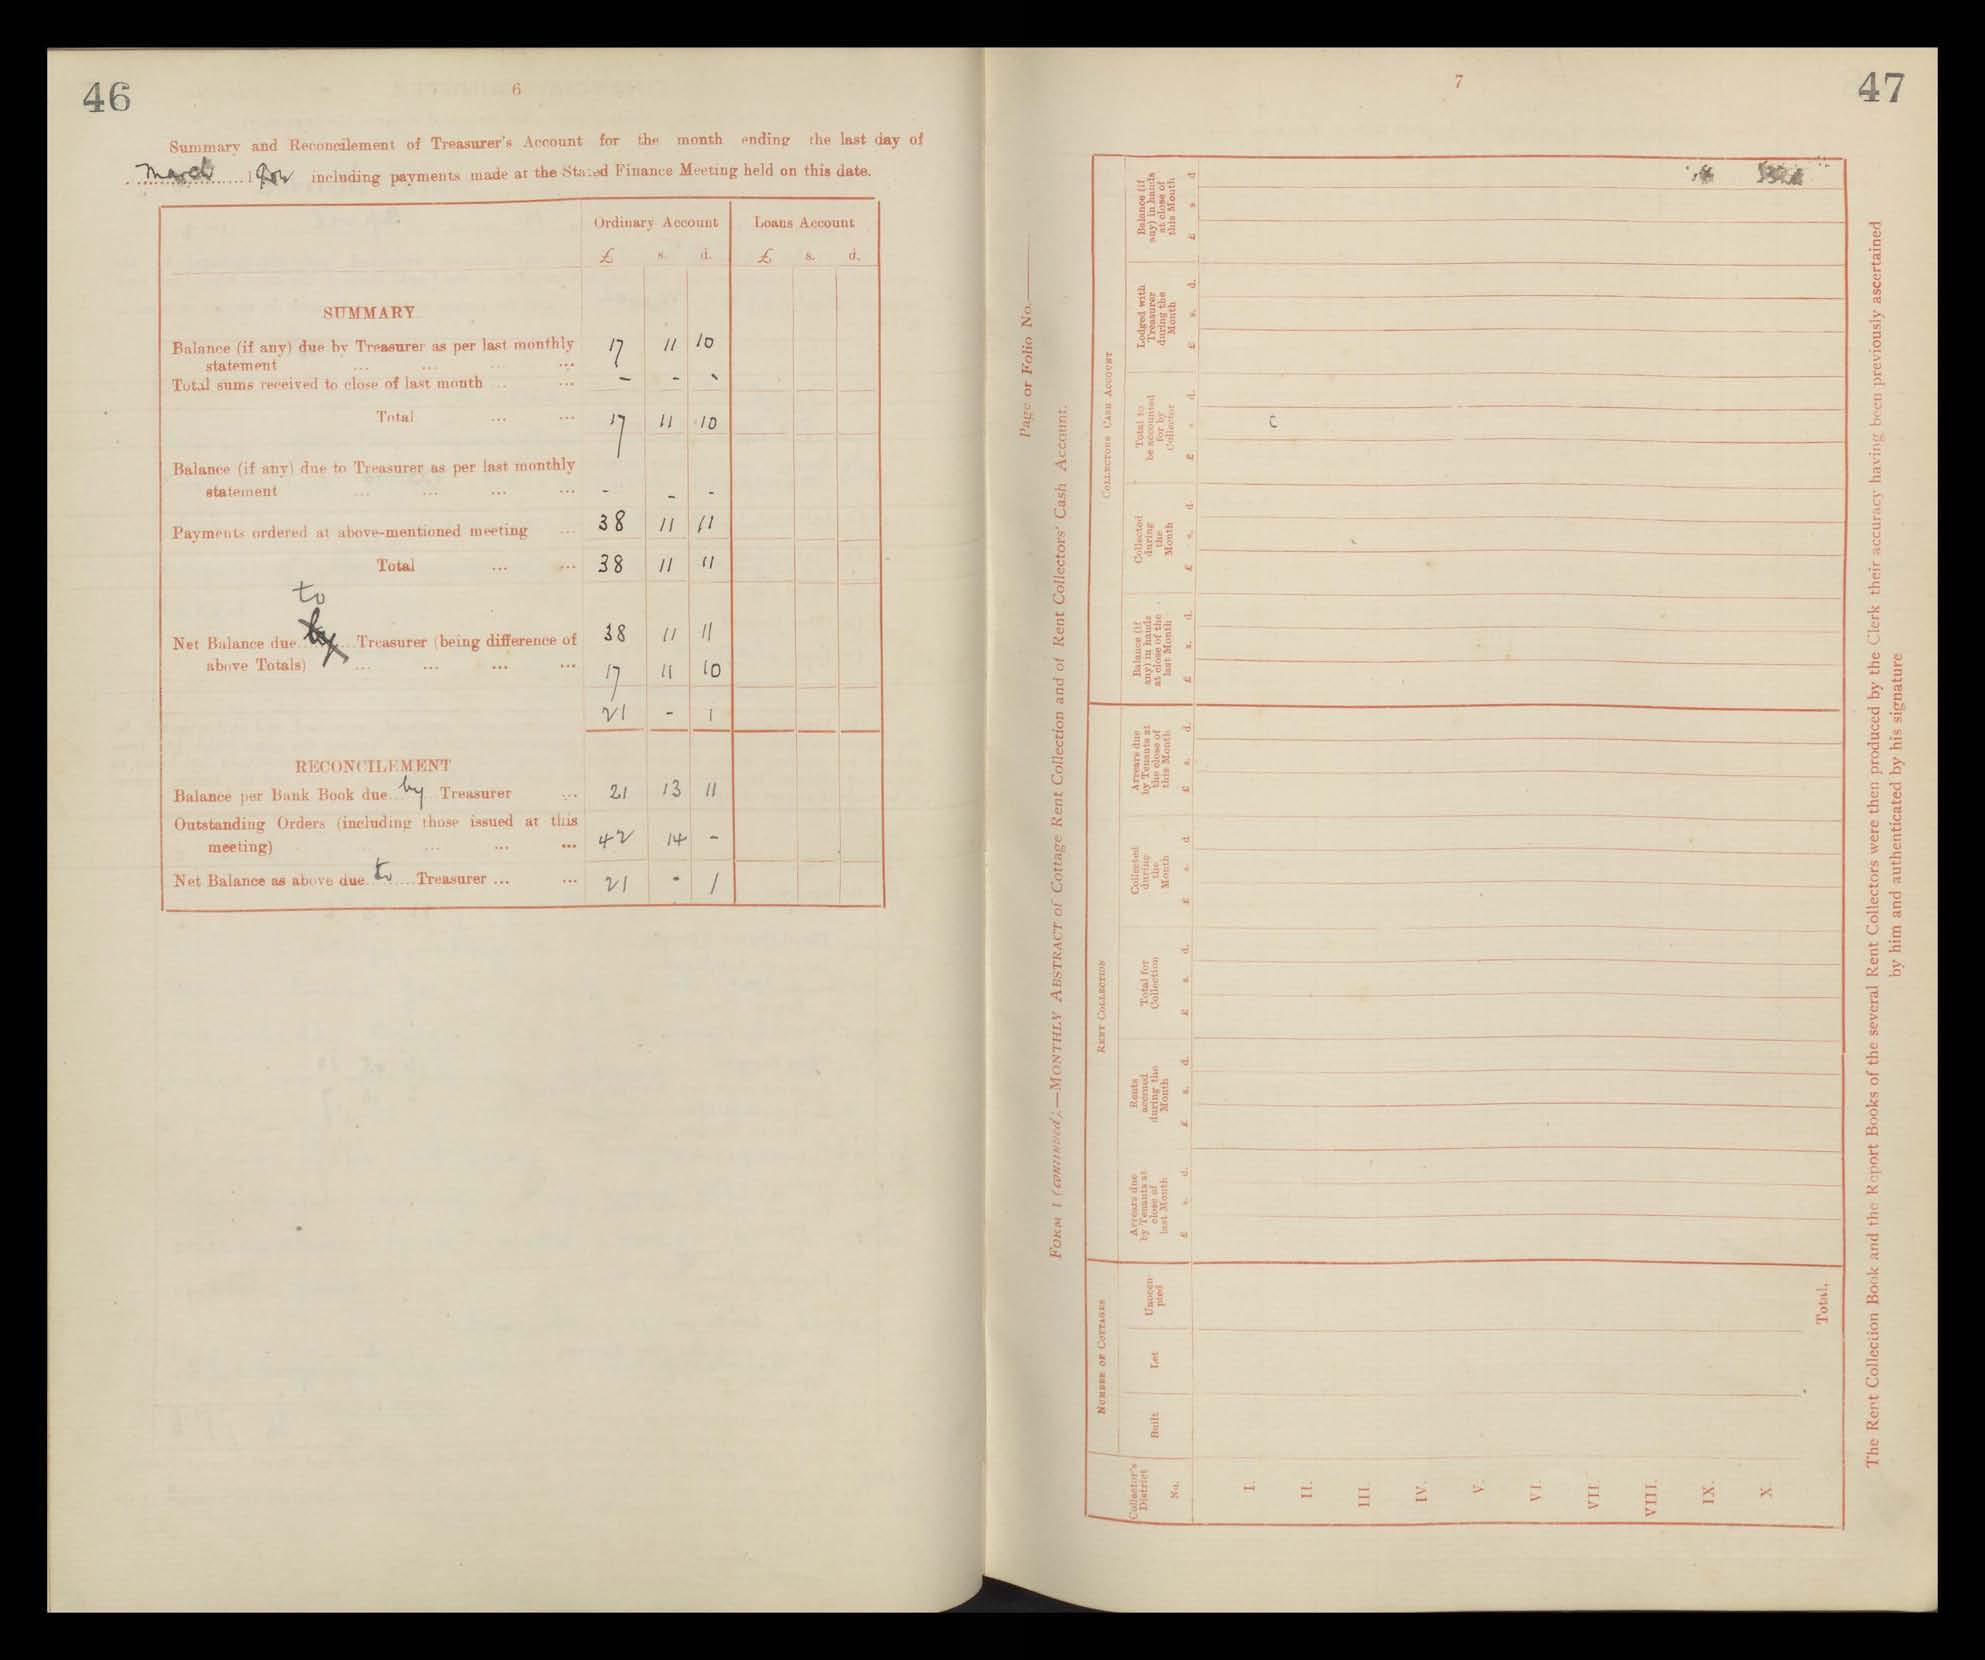 46
6
Summary and Reconcilement of Treasurer's Account for the month ending the last day of
March 1 including payments made at the Stated Finance Meeting held on this date.
Ordinary Account Loans Account
£ s. d. £ s. d.
SUMMARY
Balance (if any) due by Treasurer as per last monthly
statement ... ... ... 17 11 10
Total sums received to close of last month ... ... - - -
Total ... ... 17 11 10
Balance (if any) due to Treasurer as per last monthly
statement ... ... ... ... - - -
Payments ordered at above-mentioned meeting ... 38 11 11
Total ... ... 38 11 11
to
Net Balance due by Treasurer (being difference of 38 11 11
above Totals) ... ... ... ... 17 11 10
21 - 1
RECONCILEMENT
Balance per Bank Book due by Treasurer ... 21 13 11
Outstanding Orders (including those issued at this
meeting) ... ... ... 42 14 -
Net Balance as above due to Treasurer ... ... 21 - 1
7
47
Page or Folio No.
FORM 1 (continued).—MONTHLY ABSTRACT of Cottage Rent Collection and of Rent Collectors' Cash Account.
NUMBER OF COTTAGES RENT COLLECTION COLLECTORS CASH ACCOUNT
Collector's District No.
Built
Let
Unoccupied
Arrears due by Tenants at close of last Month £ s. d.
Rents accrued during the Month £ s. d.
Total for Collection £ s. d.
Collected during the Month £ s. d.
Arrears due by Tenants at the close of this Month £ s. d.
Balance (if any) in hands at close of the last Month £ s. d.
Collected during the Month £ s. d.
Total to be accounted for by Collector £ s. d.
Lodged with Treasurer during the Month £ s. d.
Balance (if any) in hands at close of this Month £ s. d
I.
II.
III.
IV.
V.
VI.
VII.
VIII.
IX.
X.
Total.
The Rent Collection Book and the Report Books of the several Rent Collectors were then produced by the Clerk their accuracy having been previously ascertained
by him and authenticated by his signature